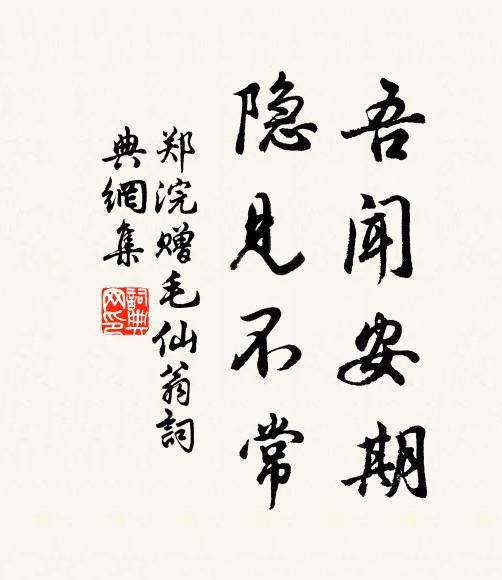 吾闻安期
隐见不常
郑浣赠毛仙翁詞
典網集
詞典网印